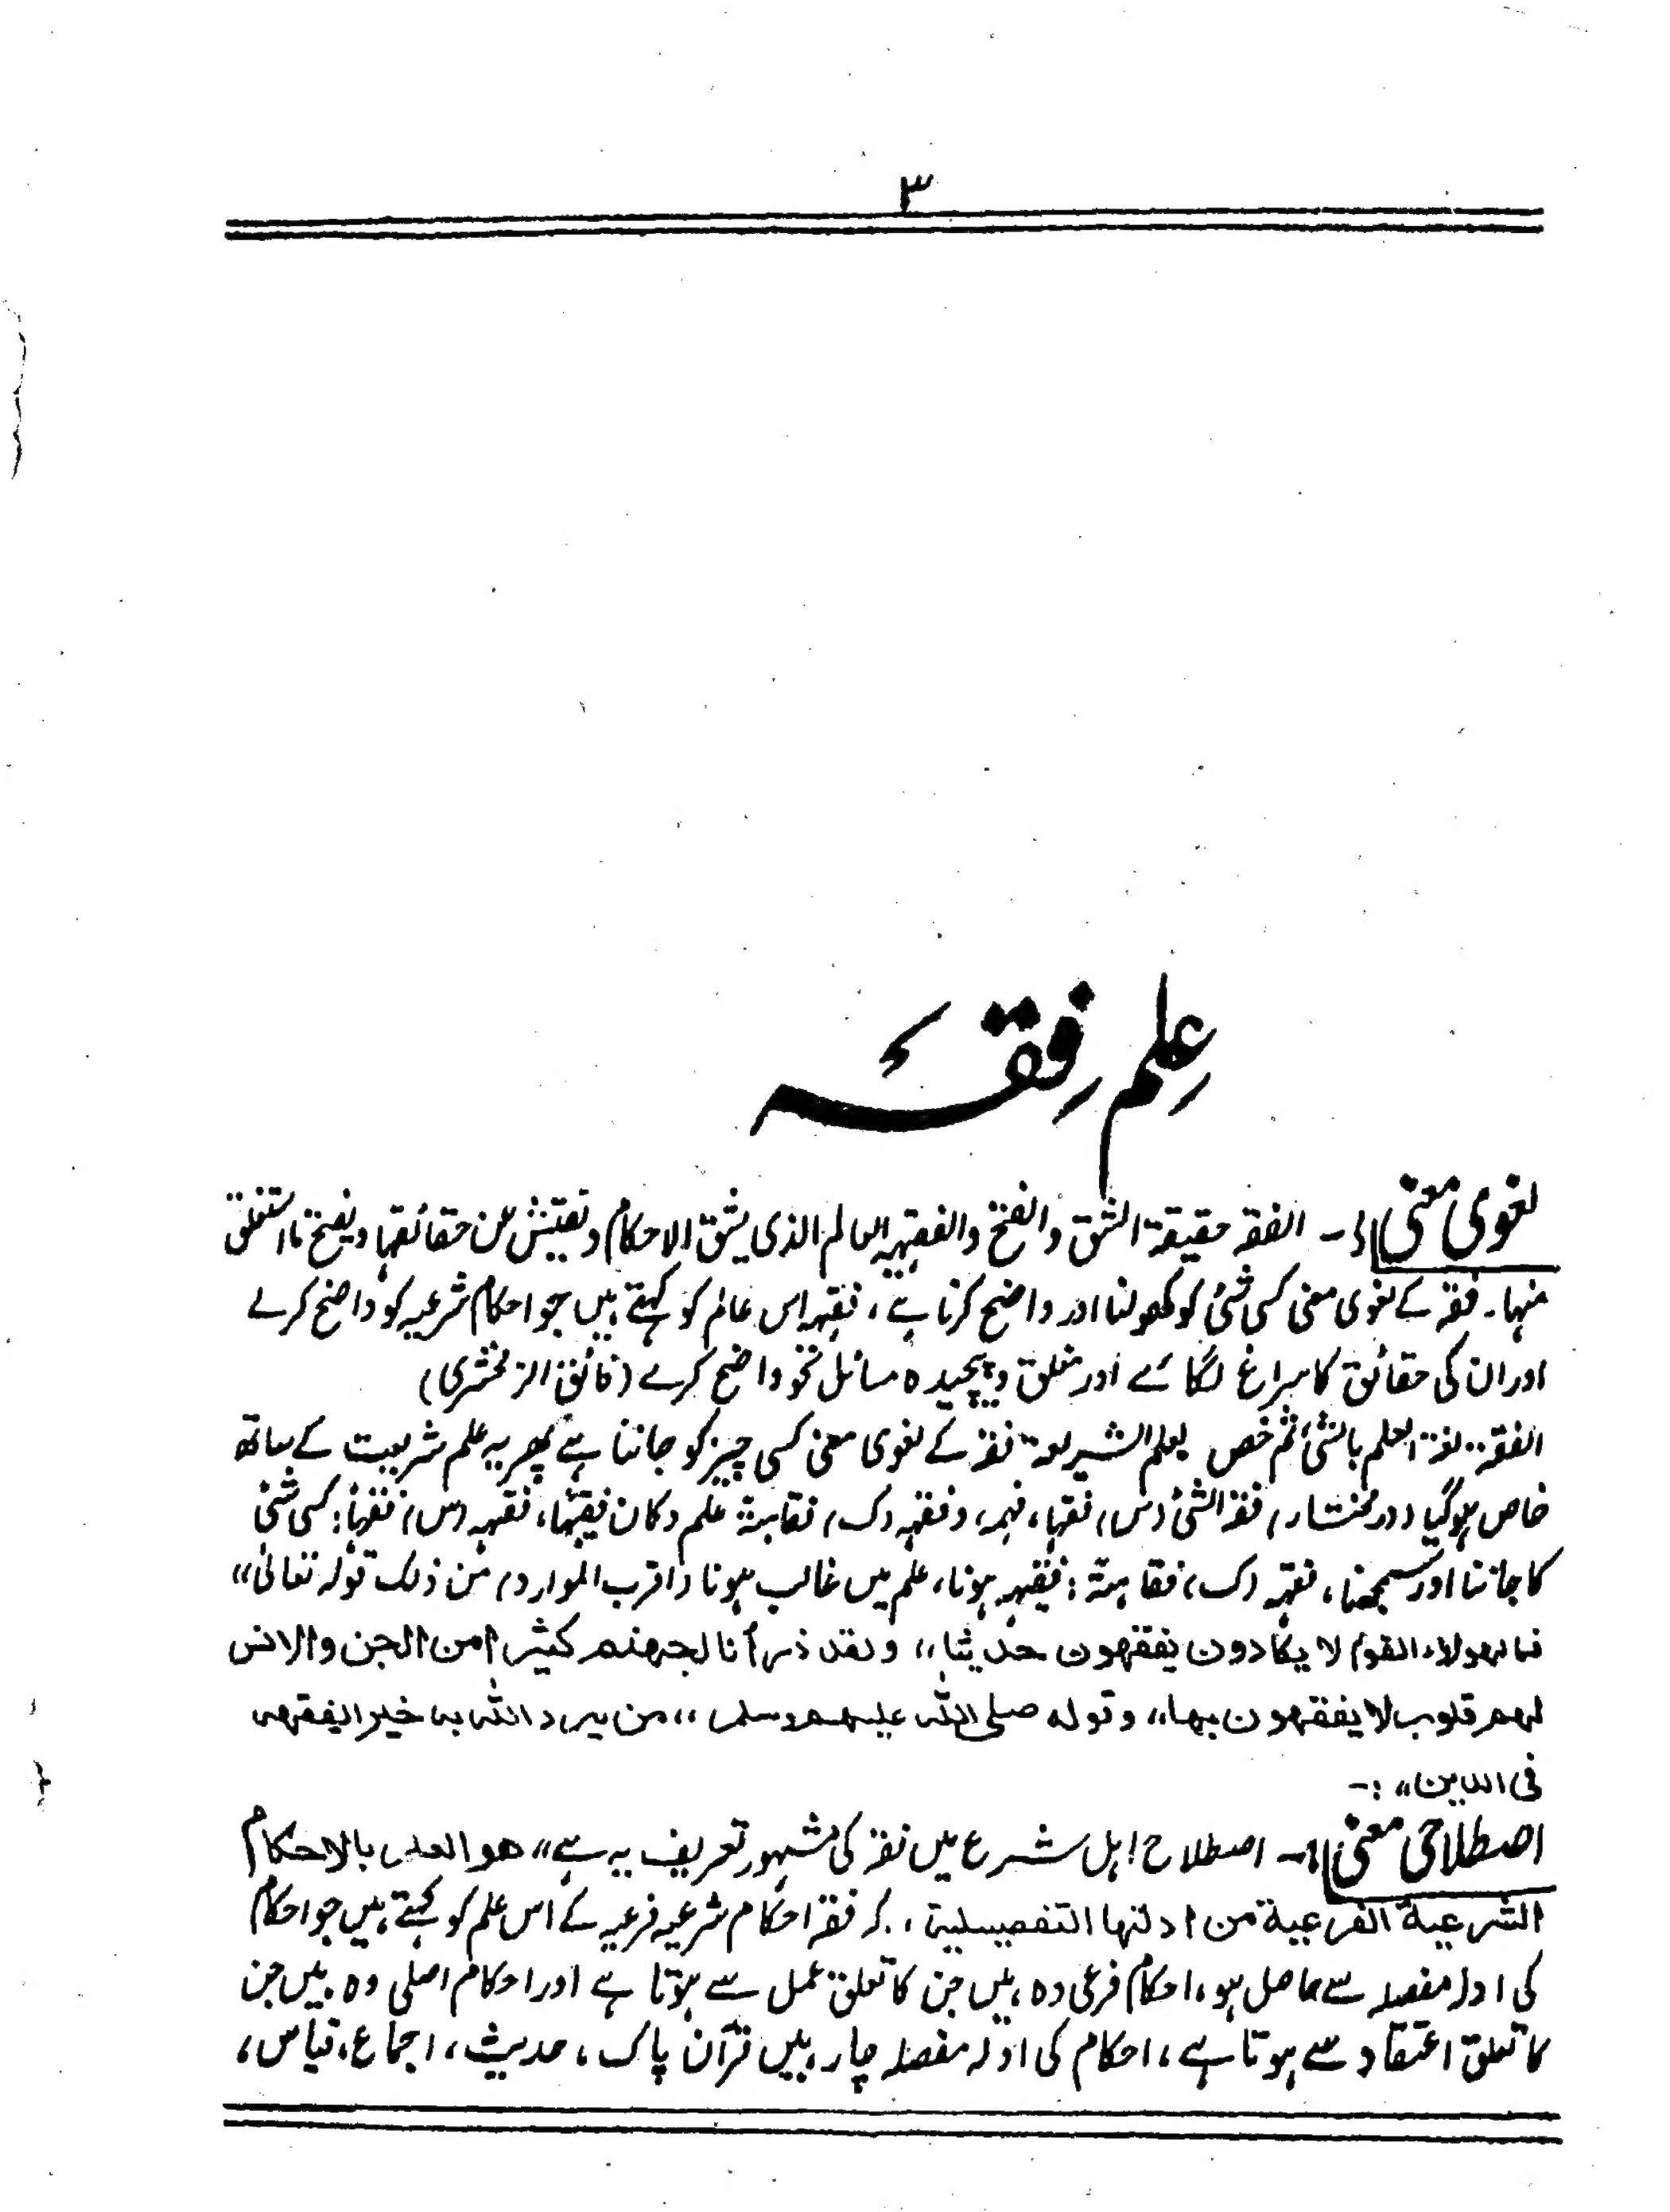 ۳
عِلم فِقہ
لغوی معنی :- الفقہ حقیقۃ الشق والفتح والفقیہ العالم الذی یشق الاحکام ویفتش عن حقائقہا ویفتح ما استغلق
منہا۔ فقہ کے لغوی معنی کسی شئ کو کھولنا اور واضح کرنا ہے، فقیہ اس عالم کو کہتے ہیں جو احکام شرعیہ کو واضح کرلے
اور ان کی حقائق کا سراغ لگائے اور مغلق وپیچیدہ مسائل کو واضح کرے (فائق الزمخشری)
الفقہ لغۃ العلم بالشئ ثم خص بعلم الشریعۃ فقہ کے لغوی معنی کسی چیز کو جاننا ہے پھر یہ علم شریعت کے ساتھ
خاص ہوگیا (درمختار) فقہ الشئ (س) فقہا، فہمہ، وفقہ (ک) فقاہۃ علم وکان فقیہا، فقہہ (س) فقہا: کسی شئ
کا جاننا اور سمجھنا، فقہ (ک) فقاہۃ: فقیہ ہونا، علم میں غالب ہونا (اقرب الموارد) من ذلک قولہ تعالیٰ،،
فمالھولاء القوم لا یکادون یفقھون حدیثا،، ولقد ذرأنا لجھنم کثیرا من الجن والانس
لھم قلوب لا یفقھون بھا،، وقولہ صلی اللہ علیہ وسلم ،،من یرد اللہ بہ خیرا یفقھہ
فی الدین،، :-
اصطلاحی معنی :- اصطلاح اہل شرع میں فقہ کی مشہور تعریف یہ ہے،، ھو العلم بالاحکام
الشرعیۃ الفرعیۃ من ادلتھا التفصیلیۃ، کہ فقہ احکام شرعیہ فرعیہ کے اس علم کو کہتے ہیں جو احکام
کی ادلہ مفصلہ سے حاصل ہو، احکام فرعی وہ ہیں جن کا تعلق عمل سے ہوتا ہے اور احکام اصلی وہ ہیں جن
کا تعلق اعتقاد سے ہوتا ہے، احکام کی ادلہ مفصلہ چار ہیں قرآن پاک، حدیث، اجماع، قیاس،